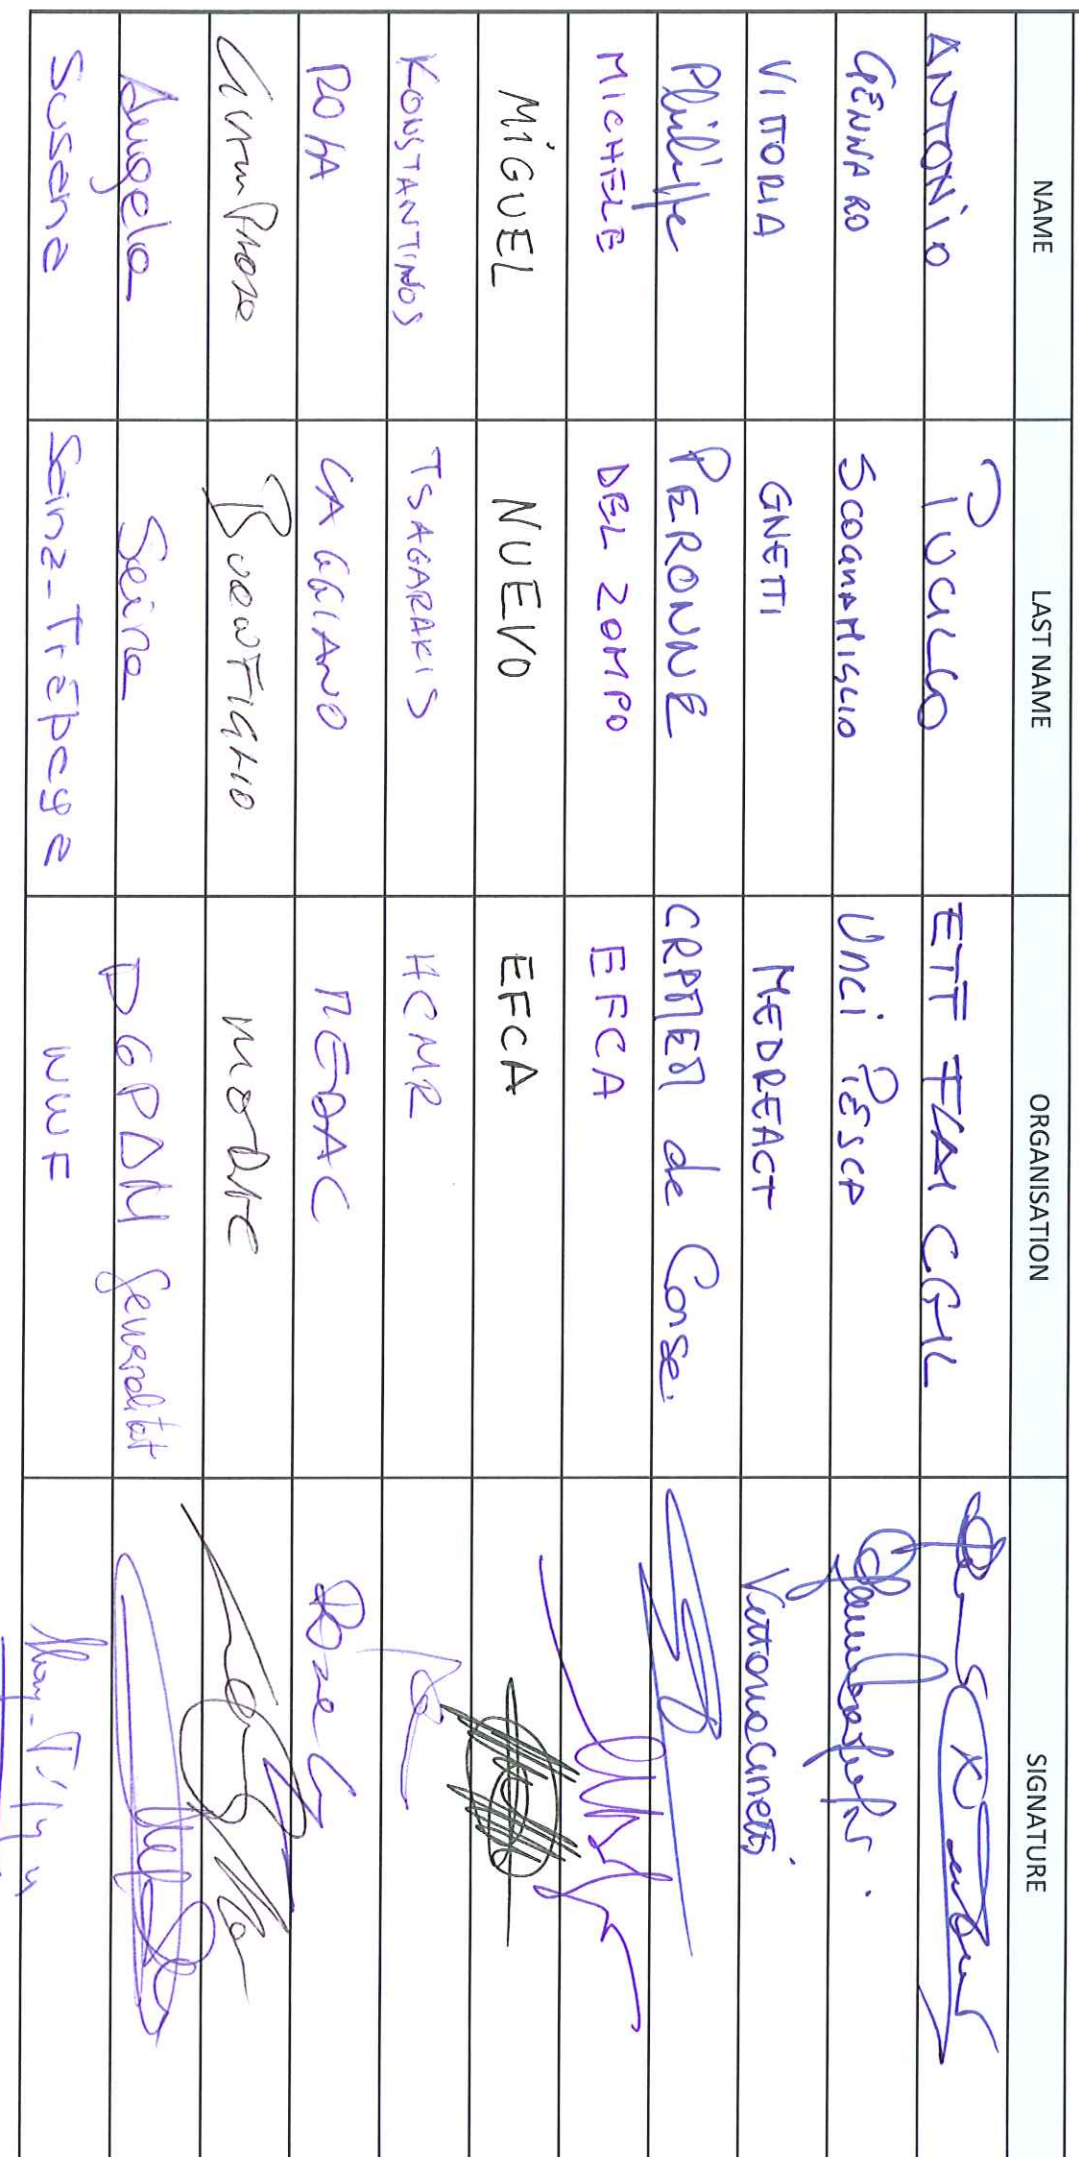 NAME LAST NAME ORGANISATION SIGNATURE
ANTONIO PUCILLO ETF FLAI CGIL
GENNARO SCOGNAMIGLIO Unci PESCA
VITTORIA GNETTI MEDREACT Vittoria Gnetti
Philippe PERONNE CRPMEM de Corse
MICHELE DEL ZOMPO EFCA
MIGUEL NUEVO EFCA
KONSTANTINOS TSAGARAKIS HCMR
ROSA CAGGIANO MEDAC
BUONFIGLIO
Angela Seira DGPAM Generalitat
Susana Sainz-Trapaga WWF